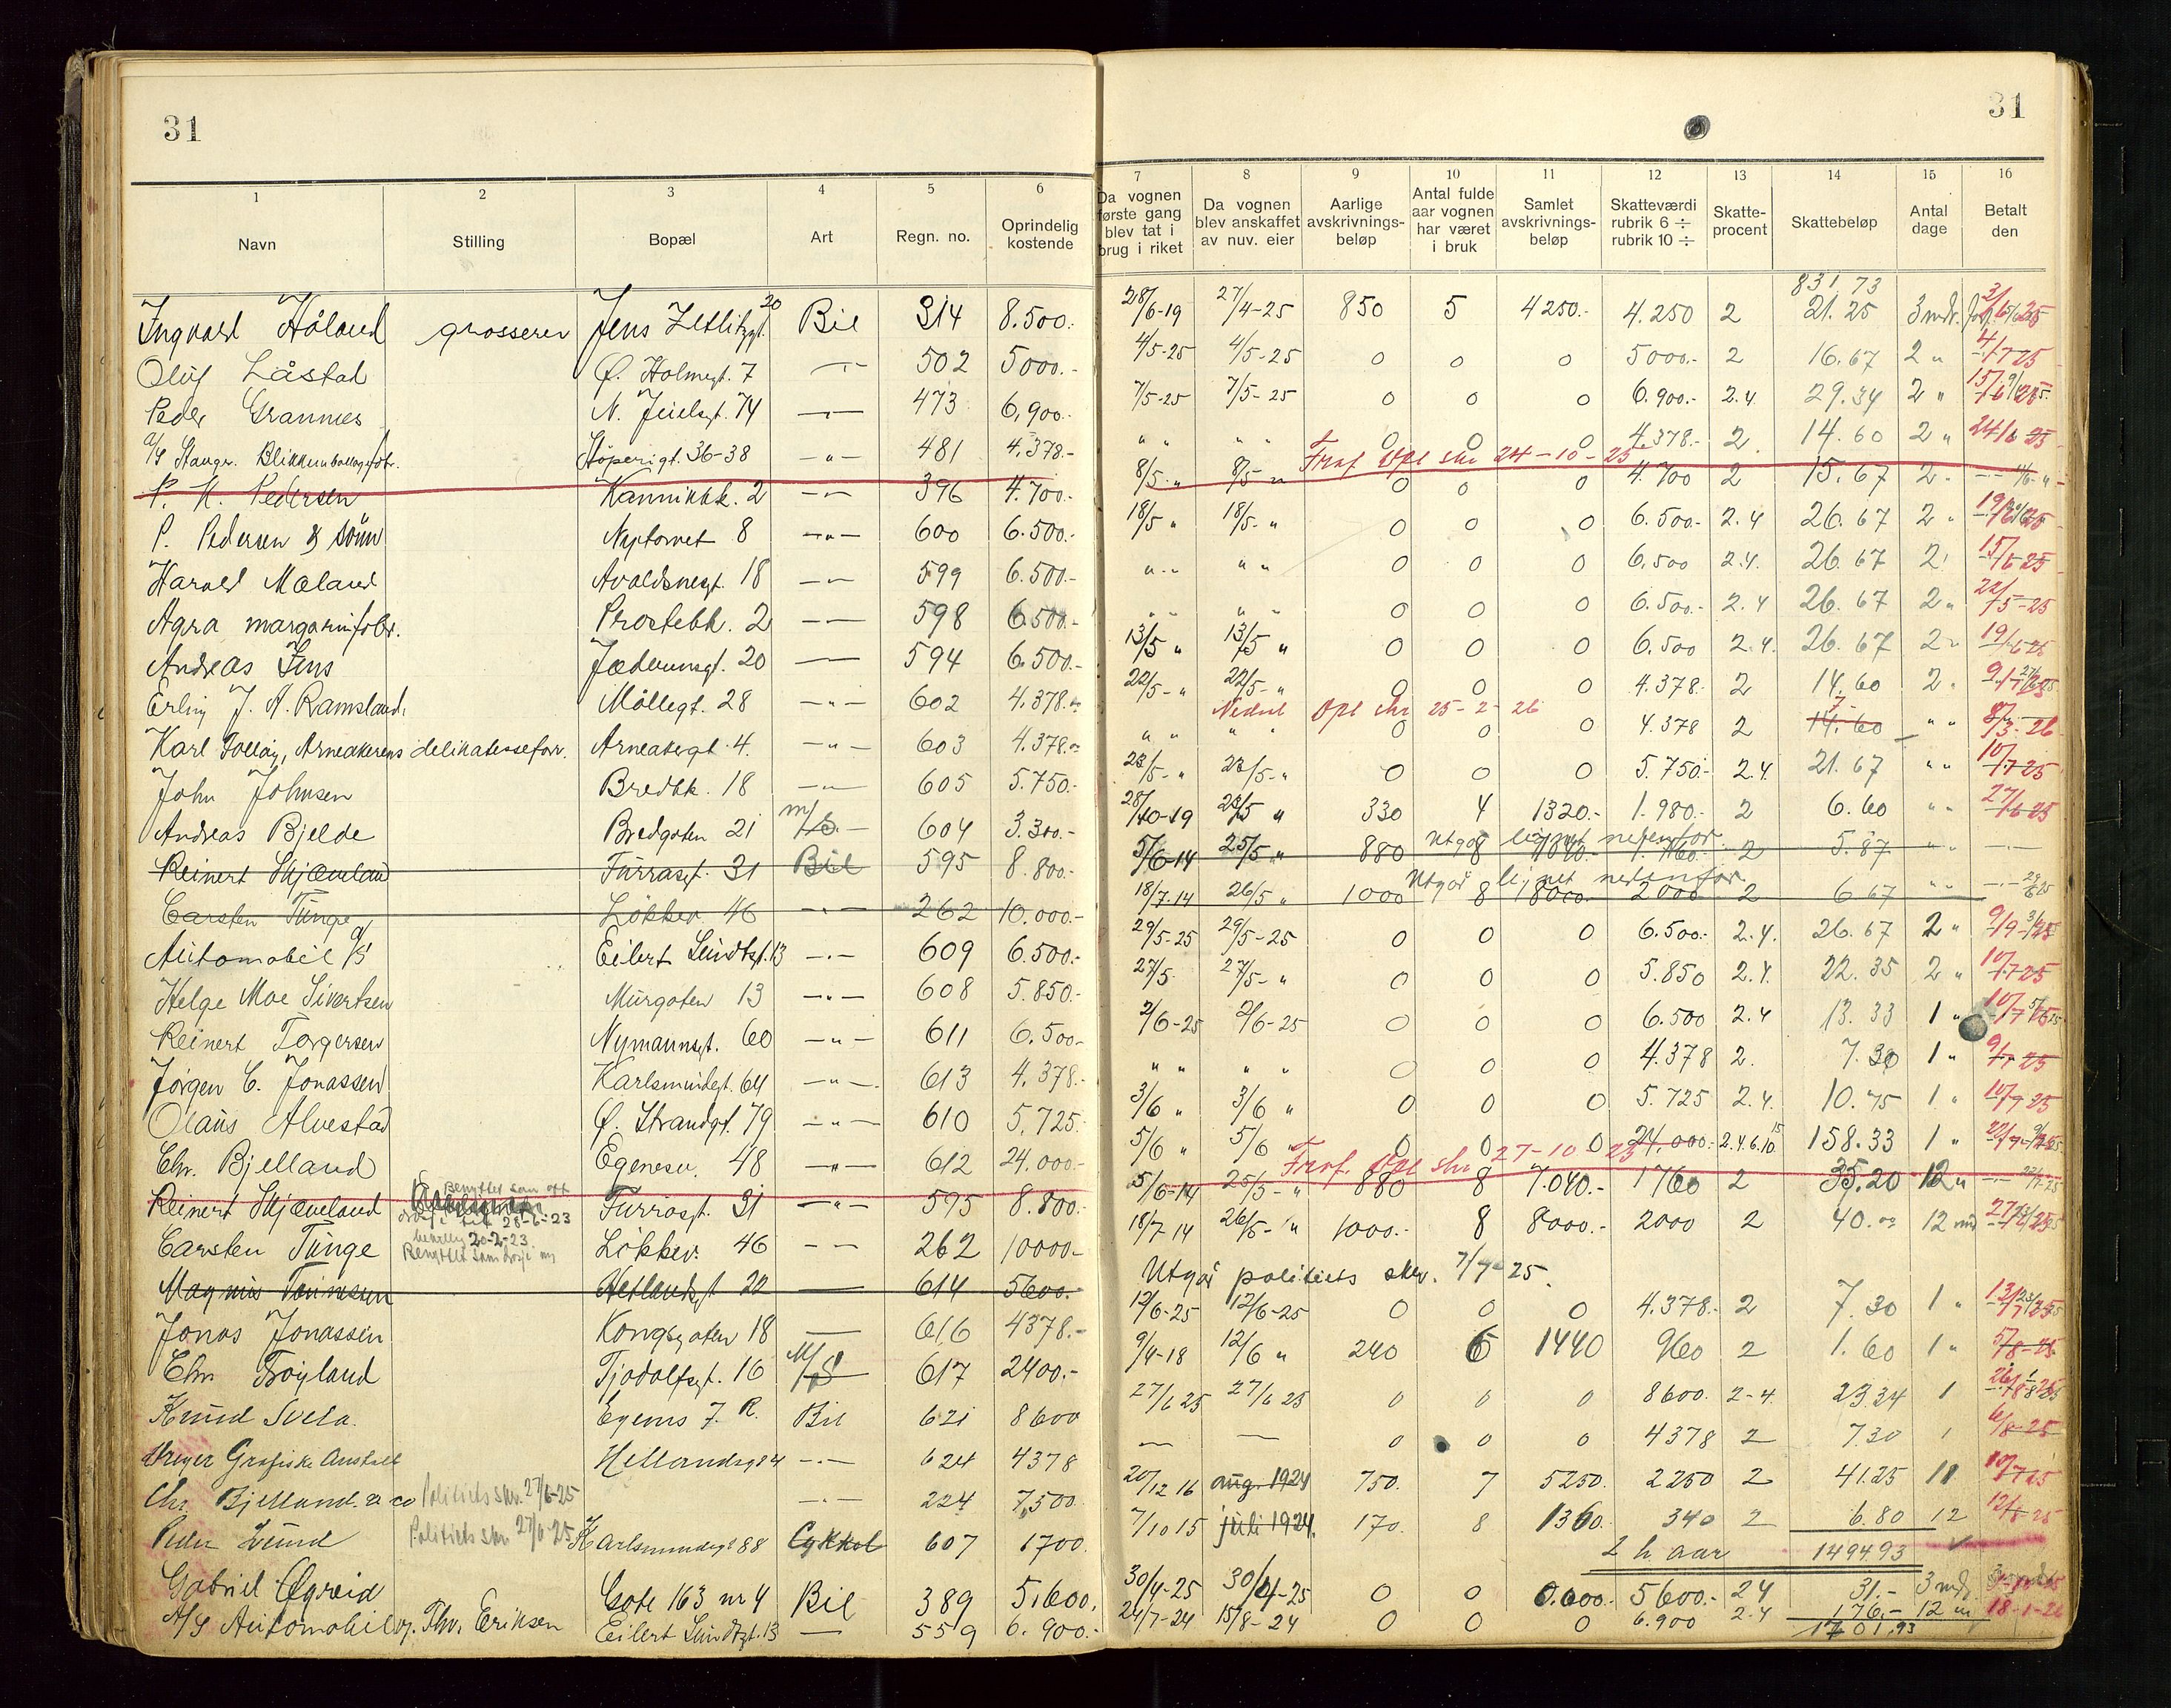 31
31
1 2 3 4 5 6 7 8 9 10 11 12 13 14 15 16
Navn Stilling Bopæl Art Regn. no. Oprindelig kostende Da vognen første gang blev tat i brug i riket Da vognen blev anskaffet av nuv. eier Aarlige avskrivnings-beløp Antal fulde aar vognen har været i bruk Samlet avskrivnings-beløp Skatteværdi rubrik 6 ÷ rubrik 10 ÷ Skatte-procent Skattebeløp Antal dage Betalt den
831.73
Ingvard Håland grosserer Jens Zetlitzgt. 20 Bil 314 8.500.- 28/6-19 27/4-25 850 5 4250.- 4.250 2 21.25 3 mdr.
Oluf Låstad Ø. Holmegt. 7 -"- 502 5000.- 4/5-25 4/5-25 0 0 0 5000.- 2 16.67 2 " 4/7 25
Peder Grannes N. Jeielsgt. 74 -"- 473 6,900.- 7/5-25 7/5-25 0 0 0 6.900.- 2.4 29.34 2 "
A/S Stavgr. Blikkemballagefabr. Støperigt. 36-38 -"- 481 4.378.- " " " " 0 0 0 4.378.- 2 14.60 2 " 24/6 25
Fraf. Opl skr 24-10-25
P. K. Pedersen Kannikbk. 2 -"- 396 4.700.- 8/5 " 8/5 " 0 0 0 4.700 2 15.67 2 "
P. Pedersen & Sönn Nytorvet 8 -"- 600 6.500.- 18/5 " 18/5- " 0 0 0 6.500.- 2.4 26.67 2 "
Harald Mæland Avaldsnesgt. 18 -"- 599 6.500.- " " " " 0 0 0 6.500 2.4. 26.67 2 " 15/6-25
Agra margarinfabr. Prostebk. 2 -"- 598 6.500.- " " " " 0 0 0 6.500.- 2.4 26.67 2 " 22/5-25
Andreas Jens Jæderensgt. 20 -"- 594 6.500.- 13/5 " 13/5 " 0 0 0 6.500 2.4. 26.67 2 "
Erling J. A. Ramsland. Møllegt. 28 -"- 602 4.378.- 22/5- " 22/5- " 0 0 0 4.378.- 2 14.60 2 "
Nedsat Opl skr 25-2-26
Karl Sollöy, Arneakerens delikatesseforr. Arneakergt. 4. -"- 603 4.378.- " " " " 0 0 0 4.378 2 14.60 " "
John Johnsen Bredbk. 18 -"- 605 5.750.- 23/5- " 23/5- " 0 0 0 5.750.- 2.4. 21.67 " " 10/7 25
Andreas Bjelde Bredgaten 21 604 3.300.- 28/10-19 23/5 " 330 4 1320.- 1.980.- 2 6.60 " " 27/6-25
Utgår lignet nedenfor
Reinert Skjæveland Furrasgt. 31 Bil 595 8.800.- 5/6-14 25/5 " 880 8 7040.- 1.760.- 2 5.87 " "
Utgår lignet nedenfor
Carsten Tunge Løkkev. 46 -"- 262 10.000.- 18/7-14 26/5 " 1000 8 8000.- 2000 2 6.67 " "
Automobil A/S Eilert Sundtsgt. 13 -"- 609 6.500.- 29/5-25 29/5-25 0 0 0 6.500.- 2.4. 26.67 2 "
Helge Moe Sivertsen Murgaten 13 -"- 608 5.850.- 27/5 27/5- " 0 0 0 5.850 2.4. 22.35 2 " 10/7 25
Reinert Torgersen Nymannsgt. 60 -"- 611 6.500.- 2/6-25 2/6-25 0 0 0 6.500 2.4 13.33 1 "
Jörgen C. Jonassen Karlsmindegt. 64 -"- 613 4.378.- " " " " 0 0 0 4.378 2. 7.30 1 " 9/7 25
Olaus Alvestad Ø. Strandgt. 79 -"- 610 5.725. 3/6 " 3/6 " 0 0 0 5.725 2.4. 10.75 1 " 10/7 25
Chr. Bjelland Egenesv. 48 -"- 612 24.000.- 5/6 " 5/6 " 0 0 0 24.000.- 2.4.6.10 15 158.33 1 "
Fraf. Opl skr 27-10 25
Benyttet som
til 28-6-23
Reinert Skjæveland Furrasgt. 31 -"- 595 8.800.- 5/6-14 25/5- " 880 8 7.040.- 1760 2 35.20 12 "
20-2-23
Benyttet som
Carsten Tunge Løkkev. 46 -"- 262 10000.- 18/7-14 26/5- " 1000.- 8 8000.- 2000 2 40.- 12
Magnus Hetlandsgt 22 614 5600.- Utgår politiets skr. 7/7-25.
Jonas Jonassen Kongsgaten 18 616 4378.- 12/6-25 12/6-25 0 0 0 4.378.- 2 7.30 1 "
Chr Tröyland Tjodolfsgt. 16 M/S 617 2400.- 9/4-18 12/6 " 240 6 1440 960 2 1.60 1 " 5/8-25
Knud Sveta Egenes 7. R. Bil 621 8600 27/6 25 27/6 25 0 0 0 8600. 2-4. 23.34 1
Dreyer Grafiske Anstalt Hetlandsg 84 -"- 624 4378 0 0 0 4378 2 7.30 1 6/8-25
Chr. Bjelland & co Politiets skr. 27/6-25 -"- 224 7,500 20/12 16 aug. 1924 750. 7 5250. 2250 2 41.25 11 10/7 25
Peder Lund Politiets skr 27/6-25 Karlsmindegt 88 Cykkel 607 1700. 7/10 15 juli 1924. 170. 8 1360. 340 2 6.80 12 12/8 25
2 h aar 1494.93
Gabriel Øgreid Gate 163 nr 4 Bil 389 5,600. 30/4-25 30/4-25 0 0 0.000.- 5600.- 2 4 31.- 3 md.
A/S Automobil v. Thv. Eriksen Eilert Sundtsgt. 13 559 6.900.- 24/7-24 15/8-24 0 0 0 6.900 2.4 176.- 12 m 18-1-26
1701.93